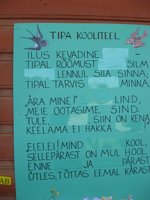 TIPA KOOLITEEL
ILUS KEVADINE
TIPAL RÕÕMUST SILM
LENNUL SIIA SINNA;
TIPAL TARVIS MINNA.
"ÄRA MINE!" LIND,
"MEIE OOTASIME SIND.
TULE, SIIN ON KENA
KEELAMA EI HAKKA
EI, EI! MIND KOOL.
SELLEPÄRAST ON MUL HOOL
ENNE JA PÄRAST
ÜTLES, TÕTTAS EEMAL KÄRAST